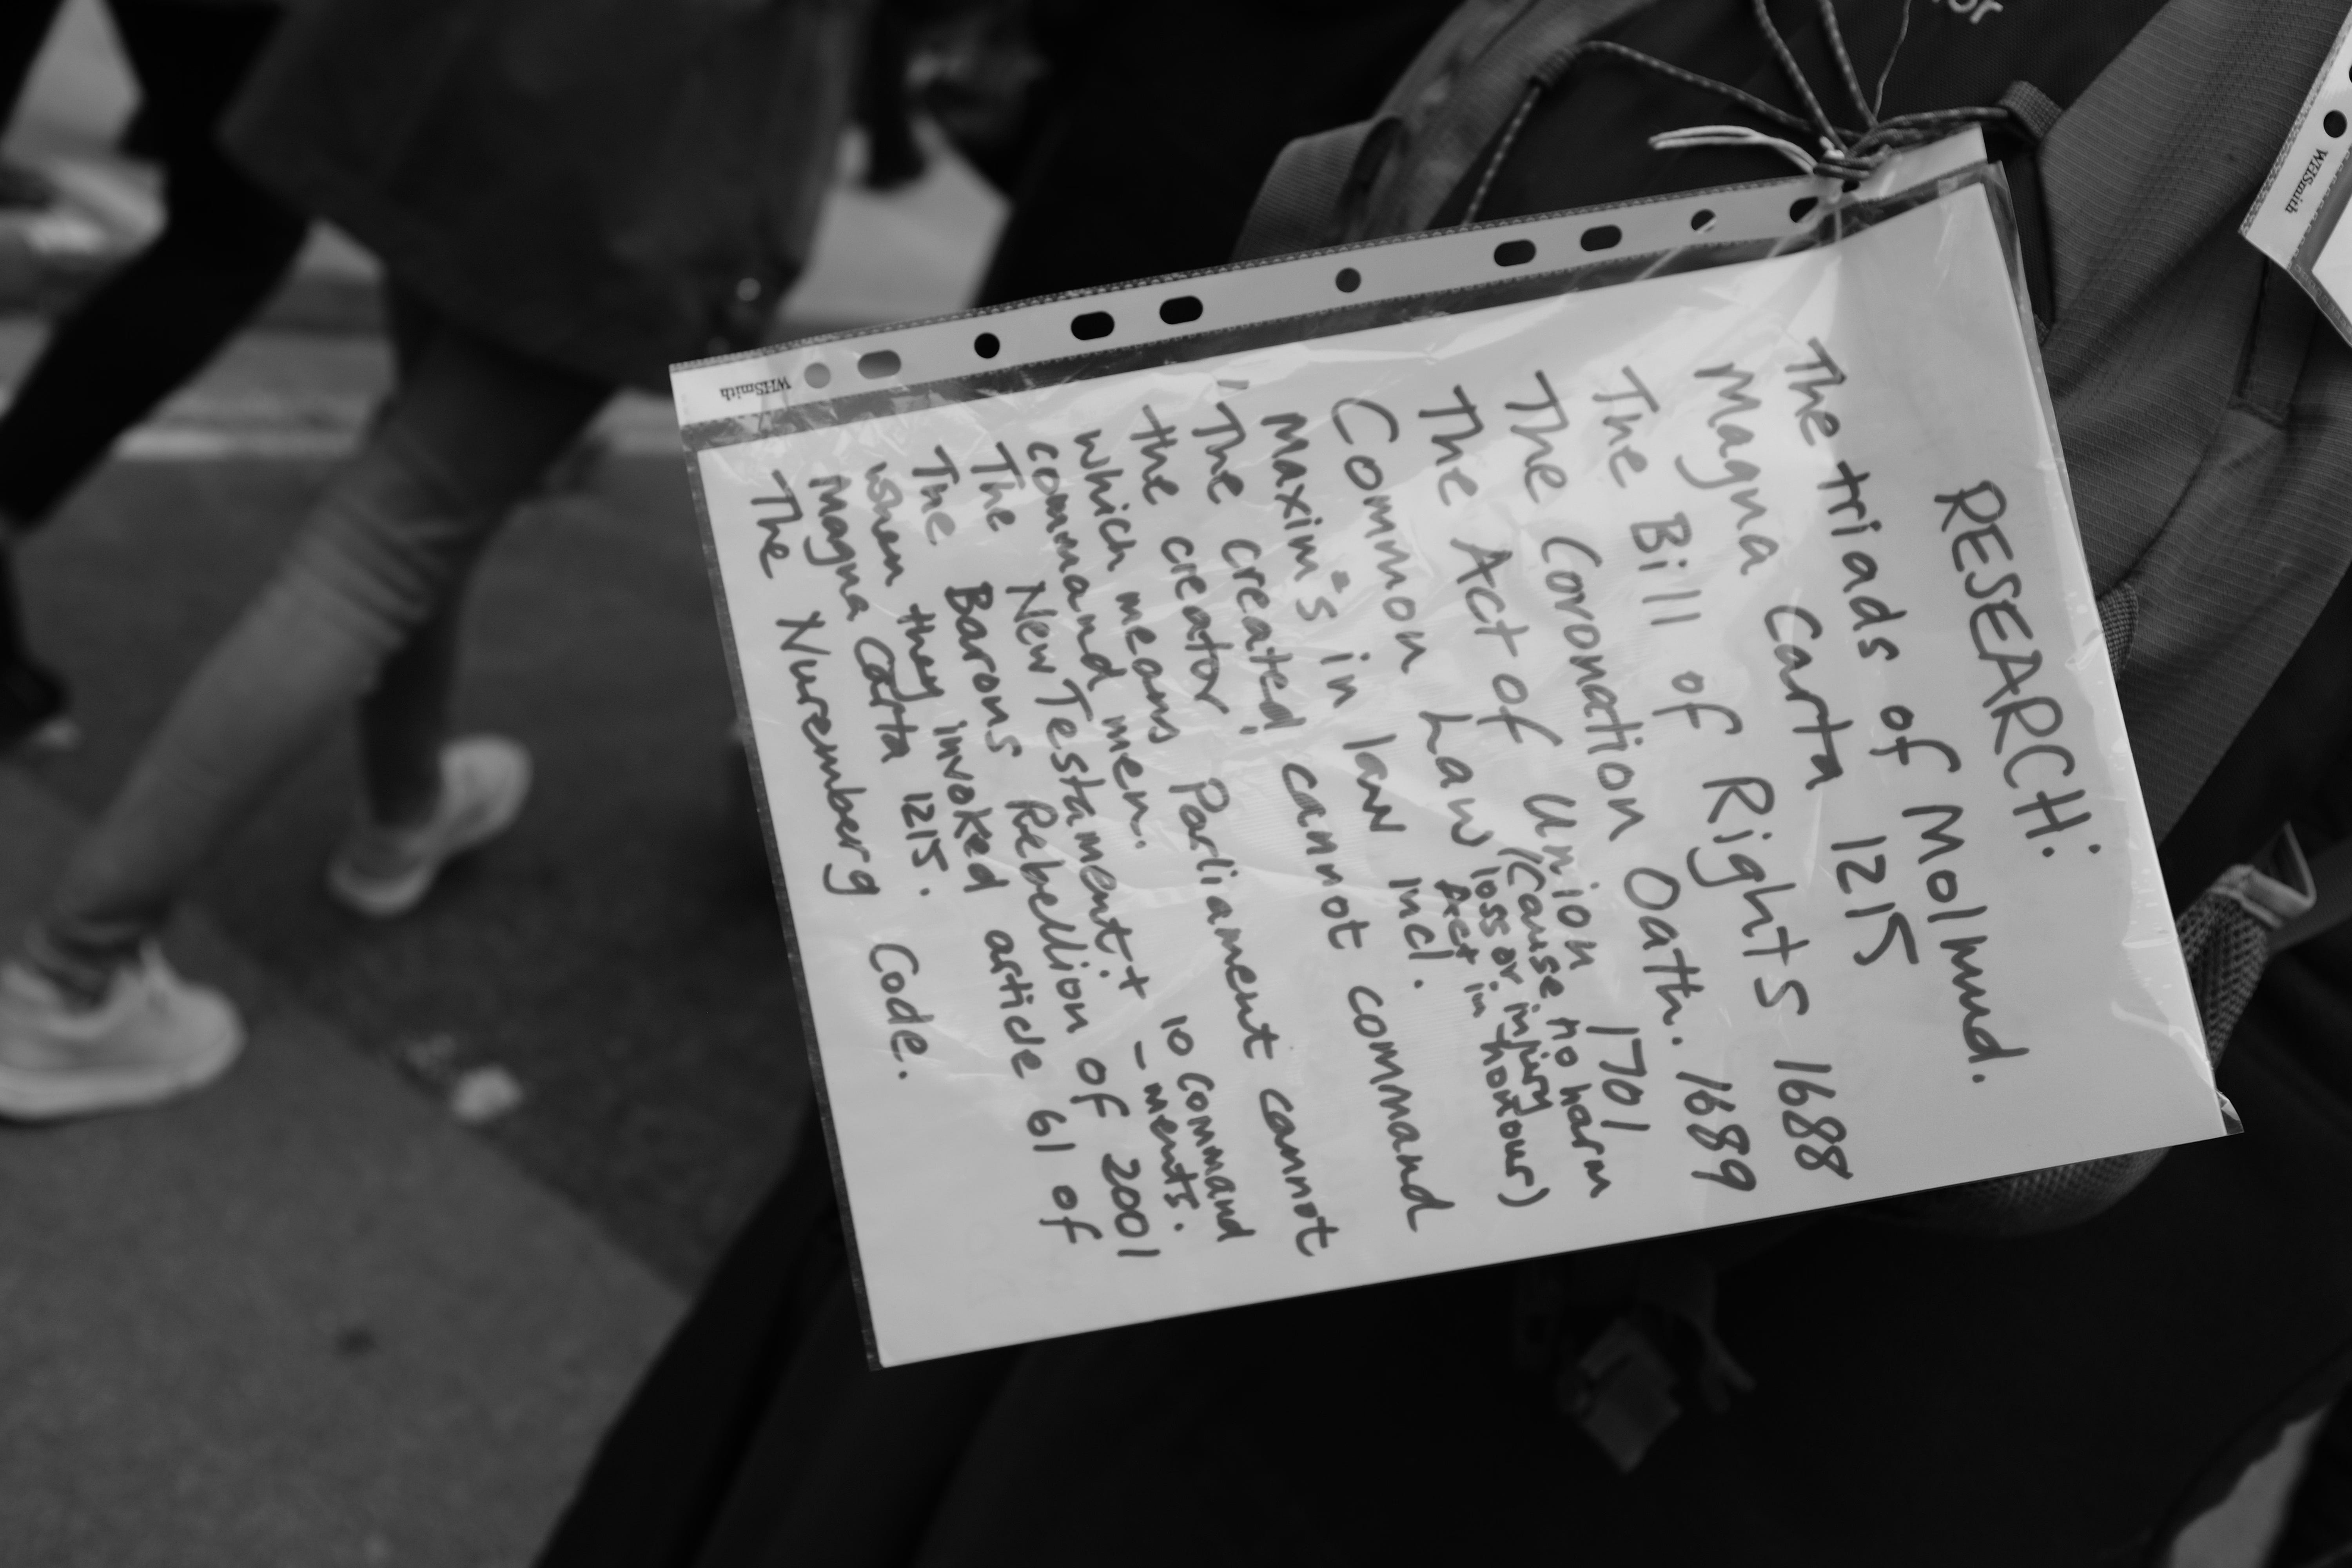 RESEARCH:
The triads of Molmud.
Magna Carta 1215
The Bill of Rights 1688
The Coronation Oath. 1689
The Act of Union 1701
Common Law (Cause no harm
loss or injury
Act in honour)
Maxim's in law incl.
'The created' cannot command
the creator
which means Parliament cannot
command men.
The New Testament + 10 command
– ments.
The Barons Rebellion of 2001
when they invoked article 61 of
Magna Carta 1215.
The Nuremberg Code.
WHSmith
WHSmith